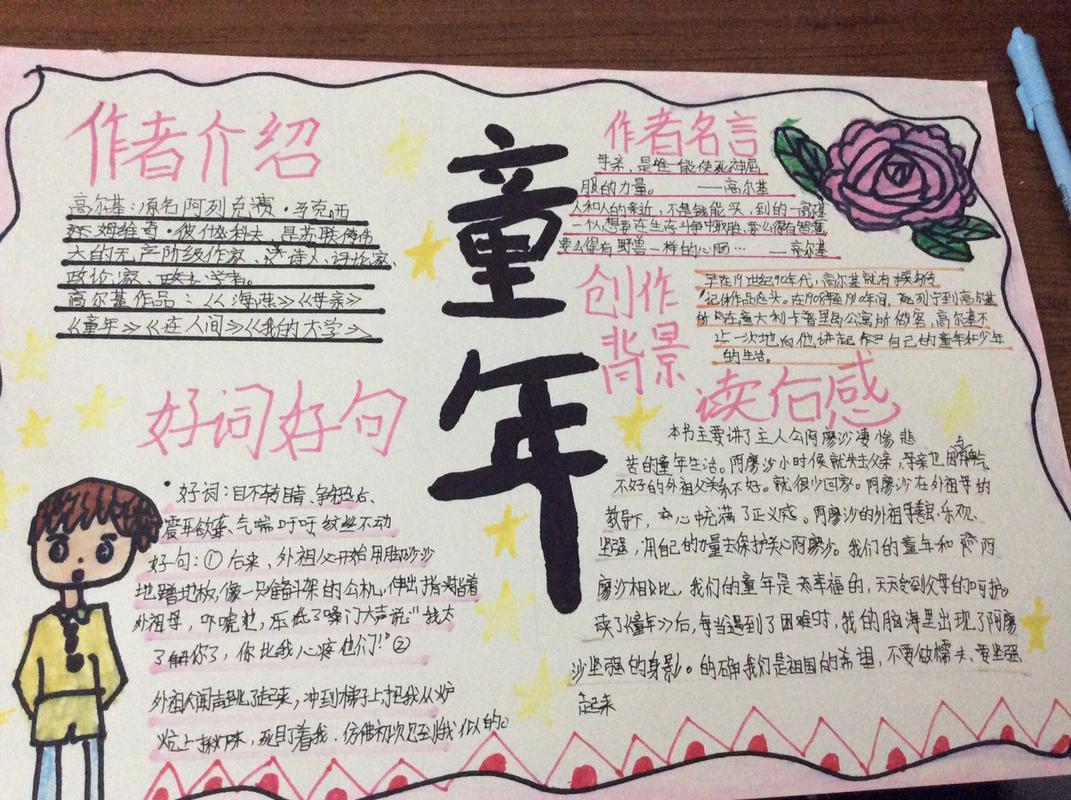 作者介绍
高尔基:原名阿列克赛·马克西
姆维奇·彼什科夫 是苏联伟
大的无产阶级作家、诗人、评论家、
政论家、学者。
高尔基作品:《海燕》《母亲》
《童年》《在人间》《我的大学》
好词好句
好词:目不转睛、
震耳欲聋、气喘吁吁、纹丝不动
好句:①后来、外祖父开始用脚
地蹭地板,像一只准备斗架的公机,伸出指头指着
外祖母,吓唬她,压低了嗓门大声说:“我太
了解你了,你比我心疼他们!”②
外祖父闻声跳了起来,冲到梯子上把我从炉
炕上揪下来,死盯着我,仿佛初次见到我似的。
童年
作者名言
母亲,是惟一能使死神屈
服的力量。——高尔基
人和人的亲近,不是钱能买到的—高尔基
一个人想要在生存斗争中取胜,要么得有智慧
要么得有野兽一样的心肠… ——高尔基
创作
背景
早在19世纪90年代,高尔基就有撰写传
记体作品念头。在1908年至1910年间,列宁到高尔基
在意大利卡普里岛公寓所做客,高尔基不
止一次地向他讲起自己的童年和少年
的生活。
读后感
本书主要讲了主人公阿廖沙凄惨悲
苦的童年生活。阿廖沙小时候就失去父亲,母亲也因
不好的外祖父关系不好。就很少回家。阿廖沙在外祖母的
教导下,心中充满了正义感。阿廖沙的外祖母善良、乐观、
坚强,用自己的力量去保护关心阿廖沙。我们的童年和阿
廖沙相比,我们的童年是幸福的,天天受到父母的呵护。
读了《童年》后,每当遇到了困难时,我的脑海里出现了阿廖
沙坚强的身影。的确我们是祖国的希望,不要做懦夫、要坚强
起来